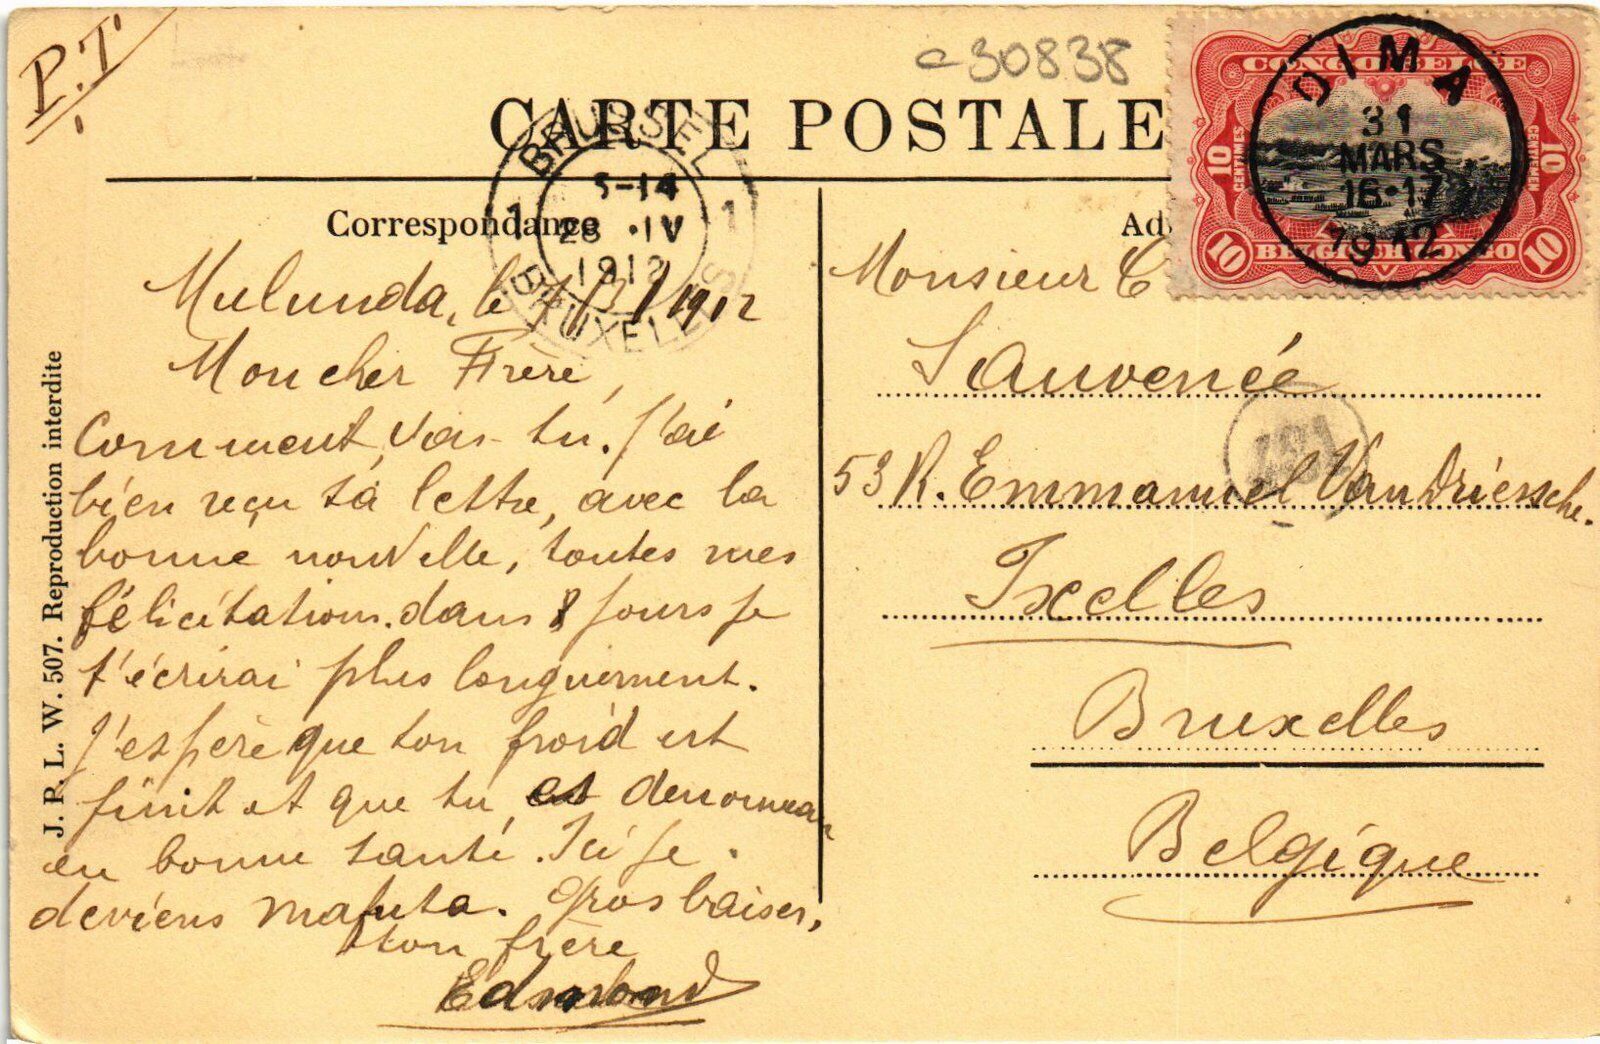 P.T.
c30838
CARTE POSTALE
CONGO BELGE
10 CENTIMES
10 CENTIMEN
10 BELGISCH CONGO 10
DIMA
31
MARS
16-17
1912
BRUSSEL
1 5-14 1
28 ·IV
1912
BRUXELLES
Correspondance
Mulunda, le /3/1912
Mon cher Frère,
Comment vas-tu. J'ai
bien reçu ta lettre, avec la
bonne nouvelle, toutes mes
félicitations. dans 8 jours je
t'écrirai plus longuement.
J'espère que ton froid est
finit et que tu es denouveau
en bonne santé. Ici je
deviens mafuta. Gros baiser,
ton frère
Edmond
Ad
Monsieur C
Sauvenée
53 R. Emmanuel Van Driessche.
Ixelles
Bruxelles
Belgique
J. P. L. W. 507. Reproduction interdite